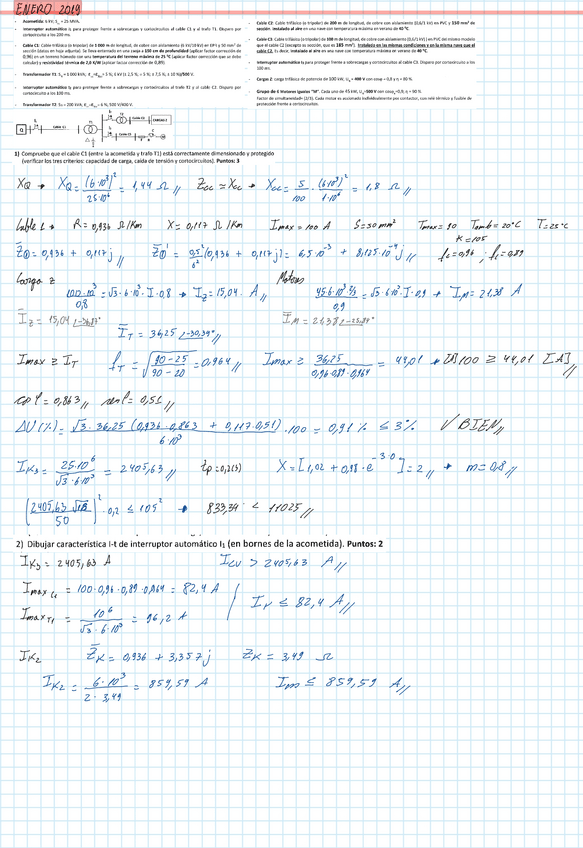 ENERO 2019
- Acometida: 6 kV; Scc = 25 MVA.
- Interruptor automático I1 para proteger frente a sobrecargas y cortocircuitos al cable C1 y al trafo T1. Disparo por cortocircuito a los 200 ms.
- Cable C1: Cable trifásico (o tripolar) de 1.000 m de longitud, de cobre con aislamiento (6 kV/10 kV) en EPR y 50 mm² de sección (datos en hoja adjunta). Se lleva enterrado en una zanja a 150 cm de profundidad (aplicar factor corrección de 0,96) en un terreno húmedo con una temperatura del terreno máxima de 25 °C (aplicar factor corrección que se debe calcular) y resistividad térmica de 2,0 K·W (aplicar factor corrección de 0,89).
- Transformador T1:
- Interruptor automático I2 para proteger frente a sobrecargas y cortocircuitos al trafo T2 y al cable C2. Disparo por cortocircuito a los 100 ms.
- Transformador T2:
- Cable C2: Cable trifásico (o tripolar) de 200 m de longitud, de cobre con aislamiento (0,6/1 kV) en PVC y
sección. Instalado al aire en una nave con temperatura máxima de verano de 40 °C
- Cable C3: Cable trifásico (o tripolar) de 100 m de longitud, de cobre con aislamiento (0,6/1 kV) en PVC del mismo modelo que el cable C2 (excepto su sección, que es 185 mm²). Instalado en las mismas condiciones y en la misma nave que el cable C2. Es decir, instalado al aire en una nave con temperatura máxima de verano de 40 °C.
- Interruptor automático I3 para proteger frente a sobrecargas y cortocircuitos al cable C3. Disparo por cortocircuito a los 100 ms.
- Cargas 2: carga trifásica de potencia de 100 kW,
- Grupo de 6 Motores iguales "M". Cada uno de 45 kW,
Factor de simultaneidad= (2/3). Cada motor es accionado individualmente por contactor, con relé térmico y fusible de protección frente a cortocircuitos.
Q
Cable C1
Cable C2
CARGAS 2
Cable C3
1) Compruebe que el cable C1 (entre la acometida y trafo T1) está correctamente dimensionado y protegido
(verificar los tres criterios: capacidad de carga, caída de tensión y cortocircuitos). Puntos: 3
XQ → XQ = (6·10³)² / 25·10⁶ = 1,44 Ω // Zcc ≈ Xcc → Xcc = 5/100 · (6·10³)² / 1·10⁶ = 1,8 Ω //
Cable 1 → R = 0,936 Ω/Km X = 0,117 Ω/Km Imax = 100 A S = 50 mm² Tmax = 90 Tamb = 20°C T = 25°C
K = 105
Z① = 0,936 + 0,117j // Z①' = 0,5²/6² (0,936 + 0,117j) = 6,5·10⁻³ + 8,125·10⁻⁴j // fc = 0,96 ; fc = 0,89
Carga 2 Motores
100·m³/0,8 = √3·6·10³·I·0,8 → I2 = 15,04 A // 45·6·10³·2/3 / 0,9 = √3·6·10³·I·0,9 → IM = 21,38 A
I2 = 15,04 ∠-36,87° IM = 21,38 ∠-25,84°
IT = 36,25 ∠-30,34°
Imax ≥ IT fT = √(90-25 / 90-20) = 0,964 // Imax ≥ 36,25 / 0,96·0,89·0,964 = 44,01 → 100 ≥ 44,01 [A] //
cos φ = 0,863 // sen φ = 0,51 //
ΔU(%) = √3·36,25 (0,936·0,863 + 0,117·0,51) / 6·10³ · 100 = 0,91% ≤ 3% ✓ BIEN //
IK3 = 25·10⁶ / √3·6·10³ = 2405,63 // tp = 0,2(s) X = [1,02 + 0,98·e⁻³·⁰] = 2 // → m = 0,8 //
(2405,63 √1,8 / 50)² · 0,2 ≤ 105² → 833,34 < 11025 //
2) Dibujar característica I-t de interruptor automático I1 (en bornes de la acometida). Puntos: 2
IK3 = 2405,63 A Icu > 2405,63 A //
Imax C1 = 100·0,96·0,89·0,964 = 82,4 A
Ir ≤ 82,4 A //
Imax T1 = 10⁶ / √3·6·10³ = 96,2 A
IK2 ZK = 0,936 + 3,357j ZK = 3,49 Ω
IK2 = 6·10³ / 2·3,49 = 859,59 A Im ≤ 859,59 A //